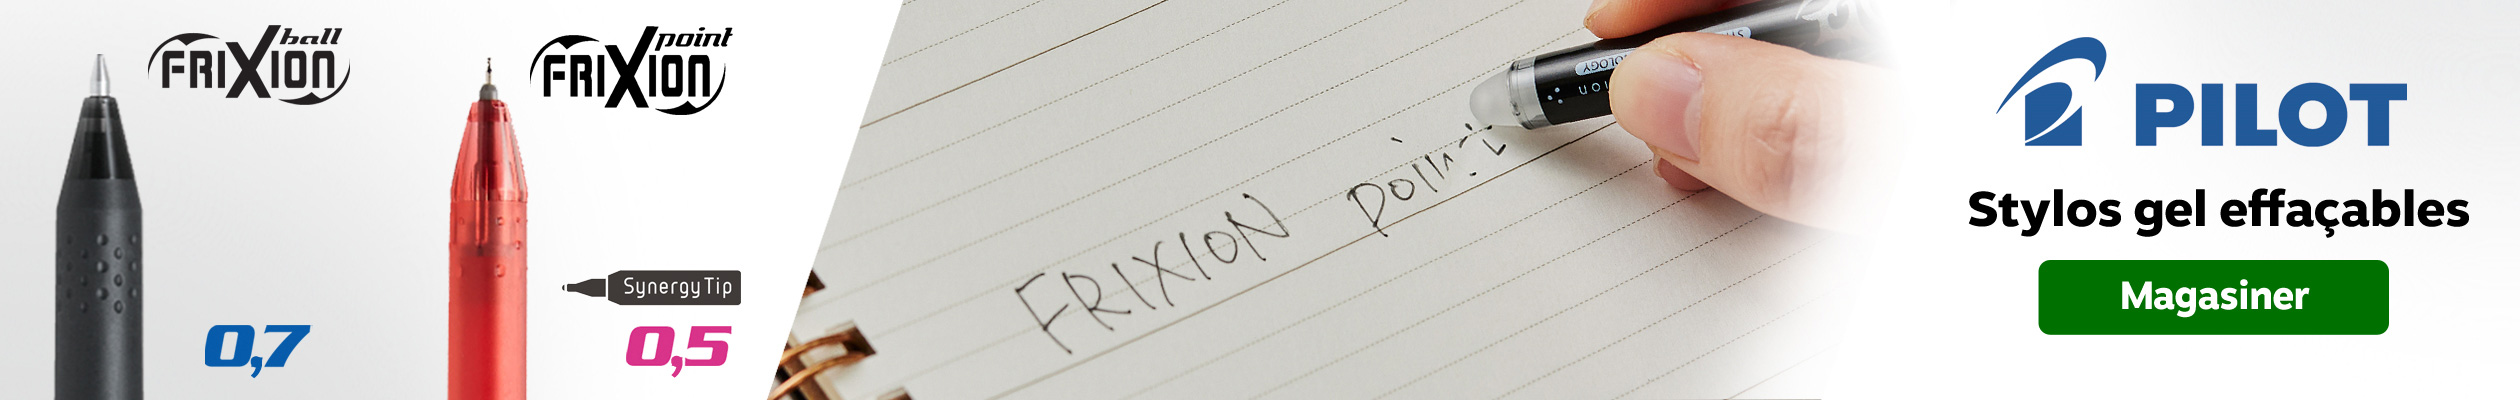 FRIXION ball
0,7
FRIXION point
SynergyTip
0,5
FRIXION poin
PILOT
Stylos gel effaçables
Magasiner